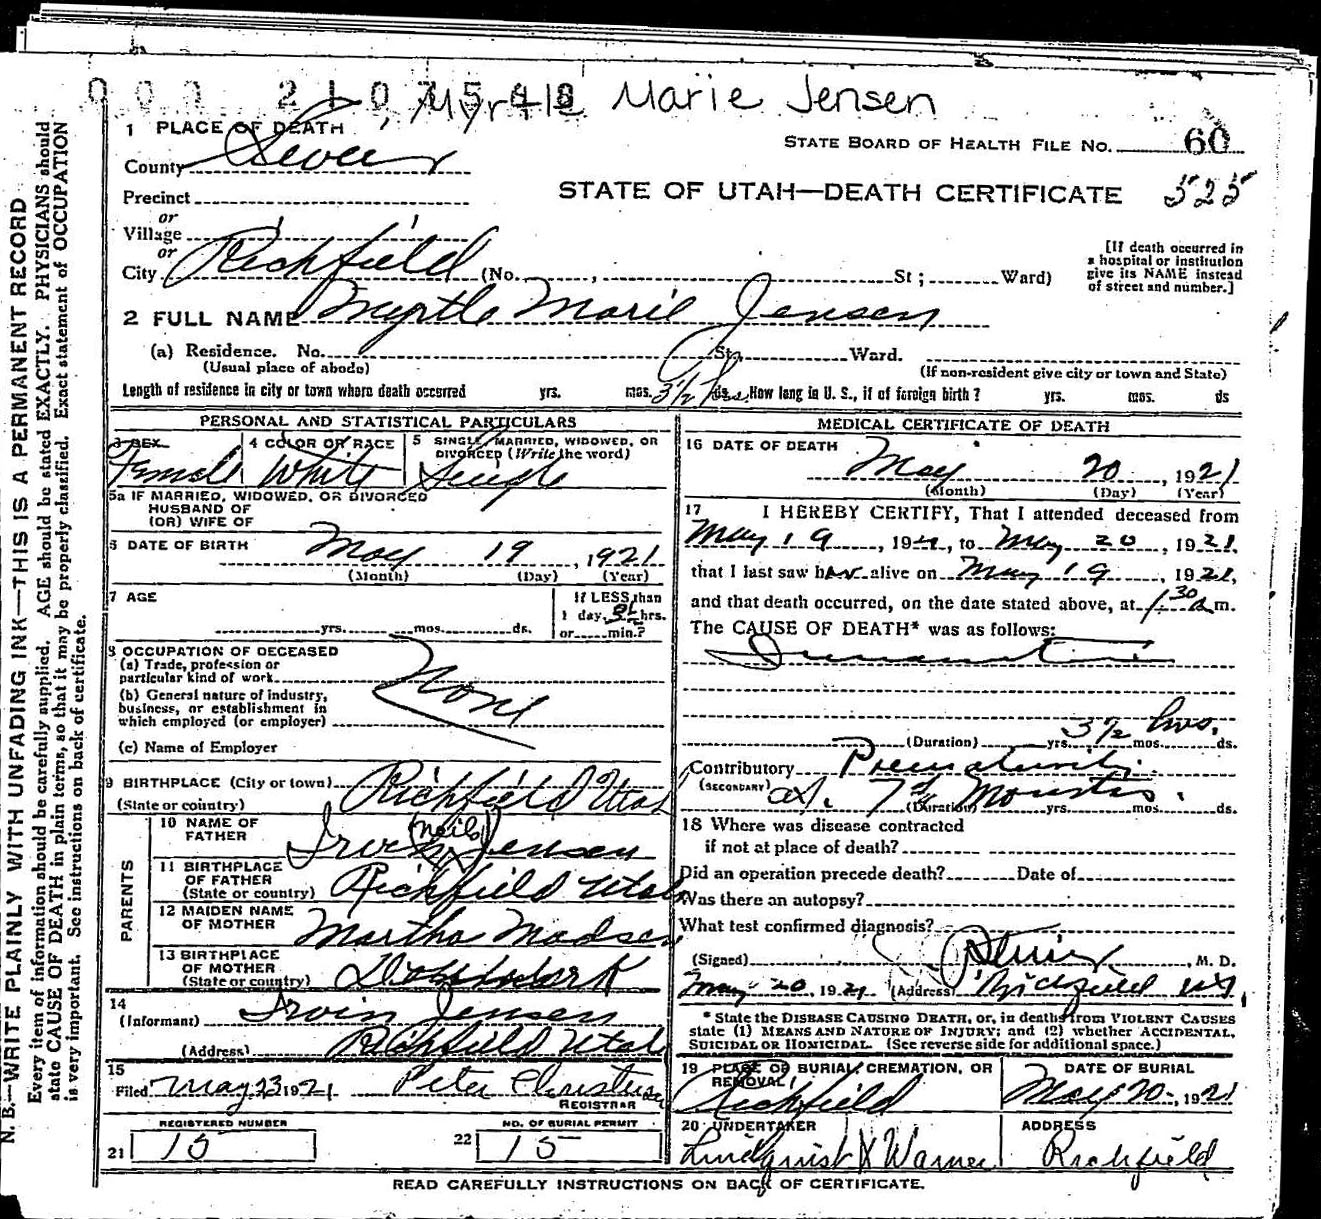 000 2107548 Myrtle Marie Jensen
1 PLACE OF DEATH
STATE BOARD OF HEALTH FILE NO. 60
County Sevier
STATE OF UTAH—DEATH CERTIFICATE 525
Precinct
or
Village
or
City Richfield (No. , St ; Ward)
[If death occurred in
a hospital or institution
give its NAME instead
of street and number.]
2 FULL NAME Myrtle Marie Jensen
(a) Residence. No. St., Ward.
(Usual place of abode)
(If non-resident give city or town and State)
Length of residence in city or town where death occurred yrs. mos. 3½ hrs. ds. How long in U. S., if of foreign birth? yrs. mos. ds
PERSONAL AND STATISTICAL PARTICULARS
3 SEX
Female
4 COLOR OR RACE
White
5 SINGLE, MARRIED, WIDOWED, OR
DIVORCED (Write the word)
Single
5a IF MARRIED, WIDOWED, OR DIVORCED
HUSBAND OF
(OR) WIFE OF
6 DATE OF BIRTH May 19, 1921
(Month) (Day) (Year)
7 AGE
yrs. mos. ds.
If LESS than
1 day, 3½ hrs.
or min.?
8 OCCUPATION OF DECEASED
(a) Trade, profession or
particular kind of work
None
(b) General nature of industry,
business, or establishment in
which employed (or employer)
(c) Name of Employer
9 BIRTHPLACE (City or town) Richfield Utah
(State or country)
PARENTS
10 NAME OF
FATHER Irvin (Neils) Jensen
11 BIRTHPLACE
OF FATHER
(State or country) Richfield Utah
12 MAIDEN NAME
OF MOTHER Martha Madsen
13 BIRTHPLACE
OF MOTHER
(State or country)
14
(Informant) Irvin Jensen
(Address) Richfield Utah
15
Filed May 23 1921 Peter Christensen
REGISTRAR
REGISTERED NUMBER
21 15
NO. OF BURIAL PERMIT
22 15
MEDICAL CERTIFICATE OF DEATH
16 DATE OF DEATH
May 20, 1921
(Month) (Day) (Year)
17 I HEREBY CERTIFY, That I attended deceased from
May 19, 1921, to May 20, 1921,
that I last saw her alive on May 19, 1921,
and that death occurred, on the date stated above, at 1:30 a m.
The CAUSE OF DEATH* was as follows:
Inanation
(Duration) yrs. 3½ mos. hrs. ds.
Contributory Prematurity
(SECONDARY) at 7½ Months.
(Duration) yrs. mos. ds.
18 Where was disease contracted
if not at place of death?
Did an operation precede death? Date of
Was there an autopsy?
What test confirmed diagnosis?
(Signed) , M. D.
May 20, 1921 (Address) Richfield Ut,
* State the DISEASE CAUSING DEATH, or, in deaths from VIOLENT CAUSES
state (1) MEANS AND NATURE OF INJURY; and (2) whether ACCIDENTAL,
SUICIDAL OR HOMICIDAL. (See reverse side for additional space.)
19 PLACE OF BURIAL, CREMATION, OR
REMOVAL
Richfield
DATE OF BURIAL
May 20, 1921
20 UNDERTAKER
Lindquist & Warner
ADDRESS
Richfield
READ CAREFULLY INSTRUCTIONS ON BACK OF CERTIFICATE.
N. B.—WRITE PLAINLY WITH UNFADING INK—THIS IS A PERMANENT RECORD
Every item of information should be carefully supplied. AGE should be stated EXACTLY. PHYSICIANS should
state CAUSE OF DEATH in plain terms, so that it may be properly classified. Exact statement of OCCUPATION
is very important. See instructions on back of certificate.